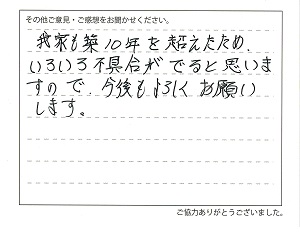 その他ご意見・ご感想をお聞かせください。
我家も築10年を超えたため、
いろいろ不具合がでると思いま
すので、今後もよろしくお願い
します。
ご協力ありがとうございました。